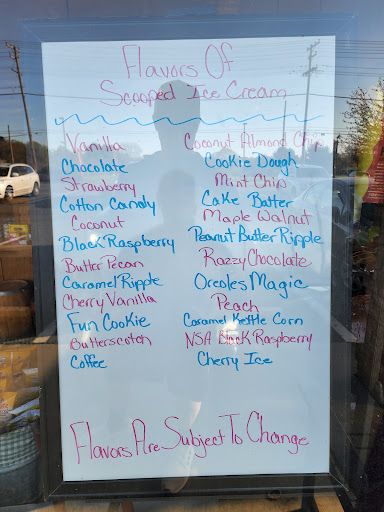 Flavors Of
Scooped Ice Cream
Vanilla
Chocolate
Strawberry
Cotton Candy
Coconut
Black Raspberry
Butter Pecan
Caramel Ripple
Cherry Vanilla
Fun Cookie
Butterscotch
Coffee
Coconut Almond Chip
Cookie Dough
Mint Chip
Cake Batter
Maple Walnut
Peanut Butter Ripple
Razzy Chocolate
Oreoles Magic
Peach
Caramel Kettle Corn
NSA Black Raspberry
Cherry Ice
Flavors Are Subject To Change